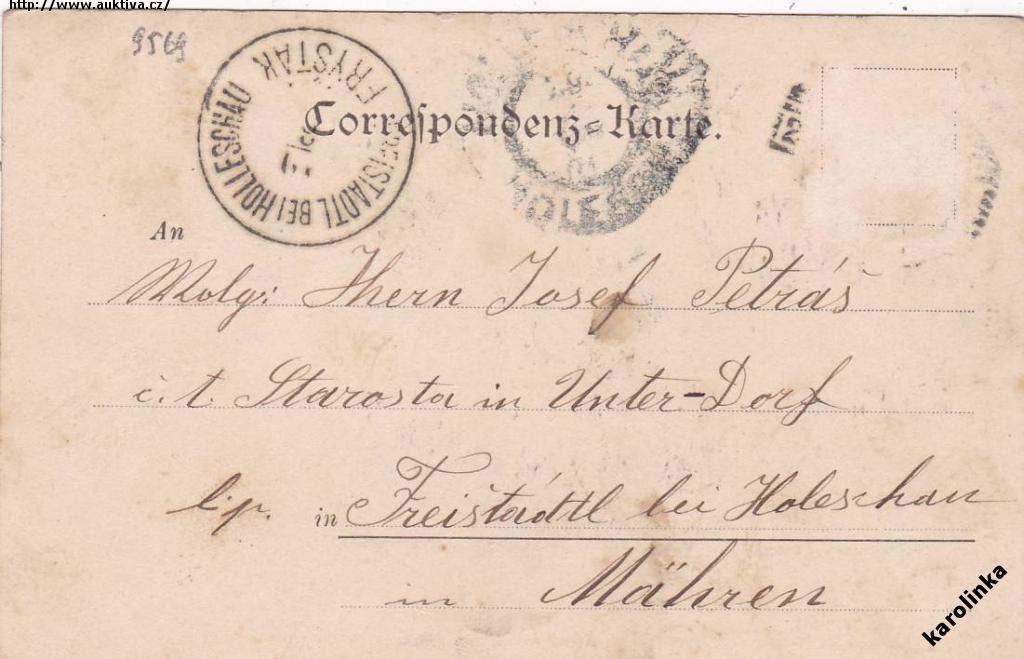 http://www.auktiva.cz/
9569
FREISTADTL BEI HOLLESCHAU
FRYŠTÁK
Correspondenz-Karte.
An
Wolg: Hern Josef Petráš
č. t. Starosta in Unter-Dorf
l. p. in Freistádtl bei Holeschau
in Mähren
karolinka